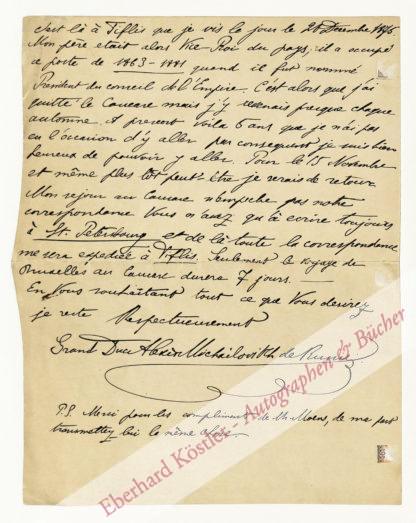 c'est là à Tiflis que je vis le jour le 20 Decembre 1875.
Mon père etait alors Vice Roi du pays, il a occupé
ce poste de 1863-1881 quand il fut nommé
President du conseil de l'Empire. C'est alors que j'ai
quitté le Caucase mais j'y revenais presque chaque
automne. A present voila 5 ans que je n'ai pas
eu l'occasion d'y aller par consequent je suis bien
heureux de pouvoir y aller. Pour le 15 Novembre
et même plus tôt peut-être je serais de retour.
Mon sejour au Caucase n'empêche pas notre
correspondance Vous n'avez qu'à ecrire toujours
à St. Petersbourg et de là toute la correspondance
me sera expediée à Tiflis. Seulement le voyage de
Bruxelles au Caucase durera 7 jours. —
En Vous souhaitant tout ce que Vous desirez
je reste Respectueusement
Grand Duc Alexis Michailovitch de Russie
P.S. Merci pour les compliments de Mr Moens, de ma part
transmettez lui la même chose.
Eberhard Köstler - Autographen & Bücher